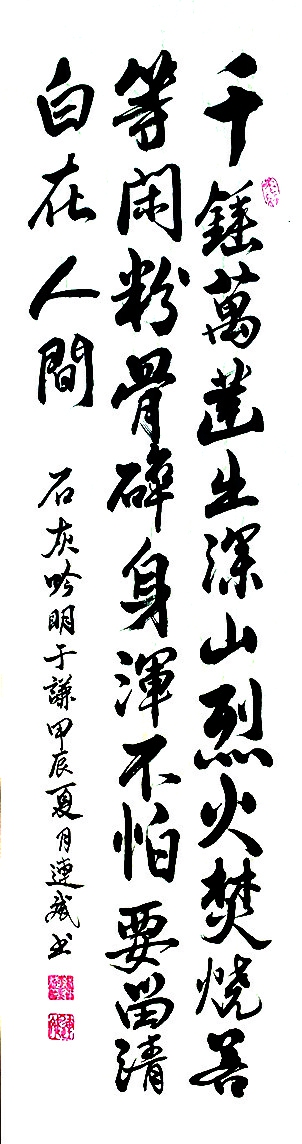 千錘萬鑿出深山烈火焚燒若
等閑粉骨碎身渾不怕要留清
白在人間
石灰吟明于謙甲辰夏月連斌书